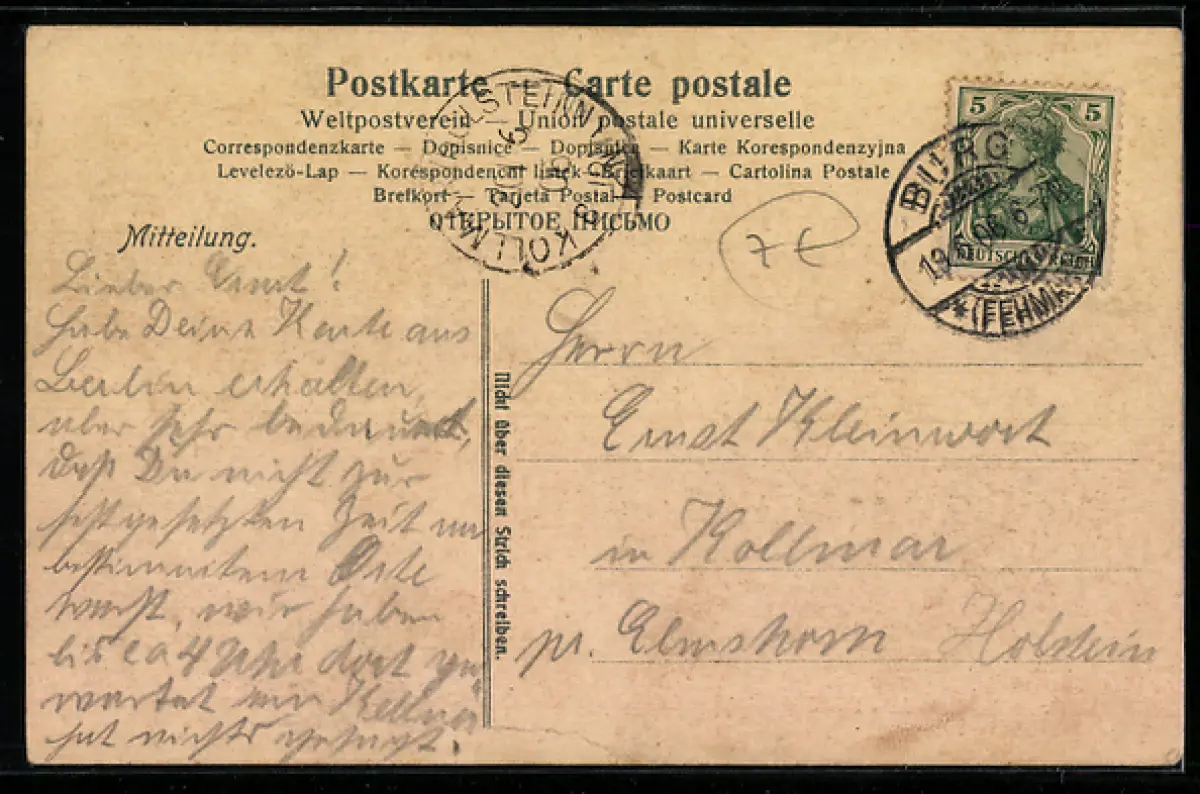 Postkarte — Carte postale
Weltpostverein — Union postale universelle
Correspondenzkarte — Dopisnice — Dopisnica — Karte Korespondenzyjna
Levelező-Lap — Korespondenčni listek — Briefkaart — Cartolina Postale
Brefkort — Tarjeta Postal — Postcard
ОТКРЫТОЕ ПИСЬМО
Mitteilung.
Lieber Ernst!
Habe Deine Karte aus
Berlin erhalten,
aber sehr bedauert,
daß Du nicht zur
festgesetzten Zeit am
bestimmten Orte
warst, wir haben
bis ca 4 Uhr dort ge
wartet
hat nichts gesagt.
Nicht über diesen Strich schreiben.
Herrn
Ernst Kleinwort
in Kollmar
pr. Elmshorn Holstein
5 5
DEUTSCHES REICH
BURG
19.5.06.6-7N.
*(FEHMARN)
KOLLMAR
HOLSTEIN